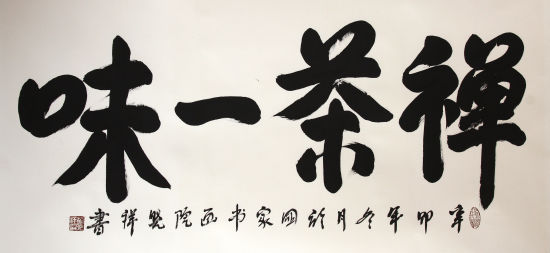 禅茶一味
辛卯年冬月於國家书画院晓祥書